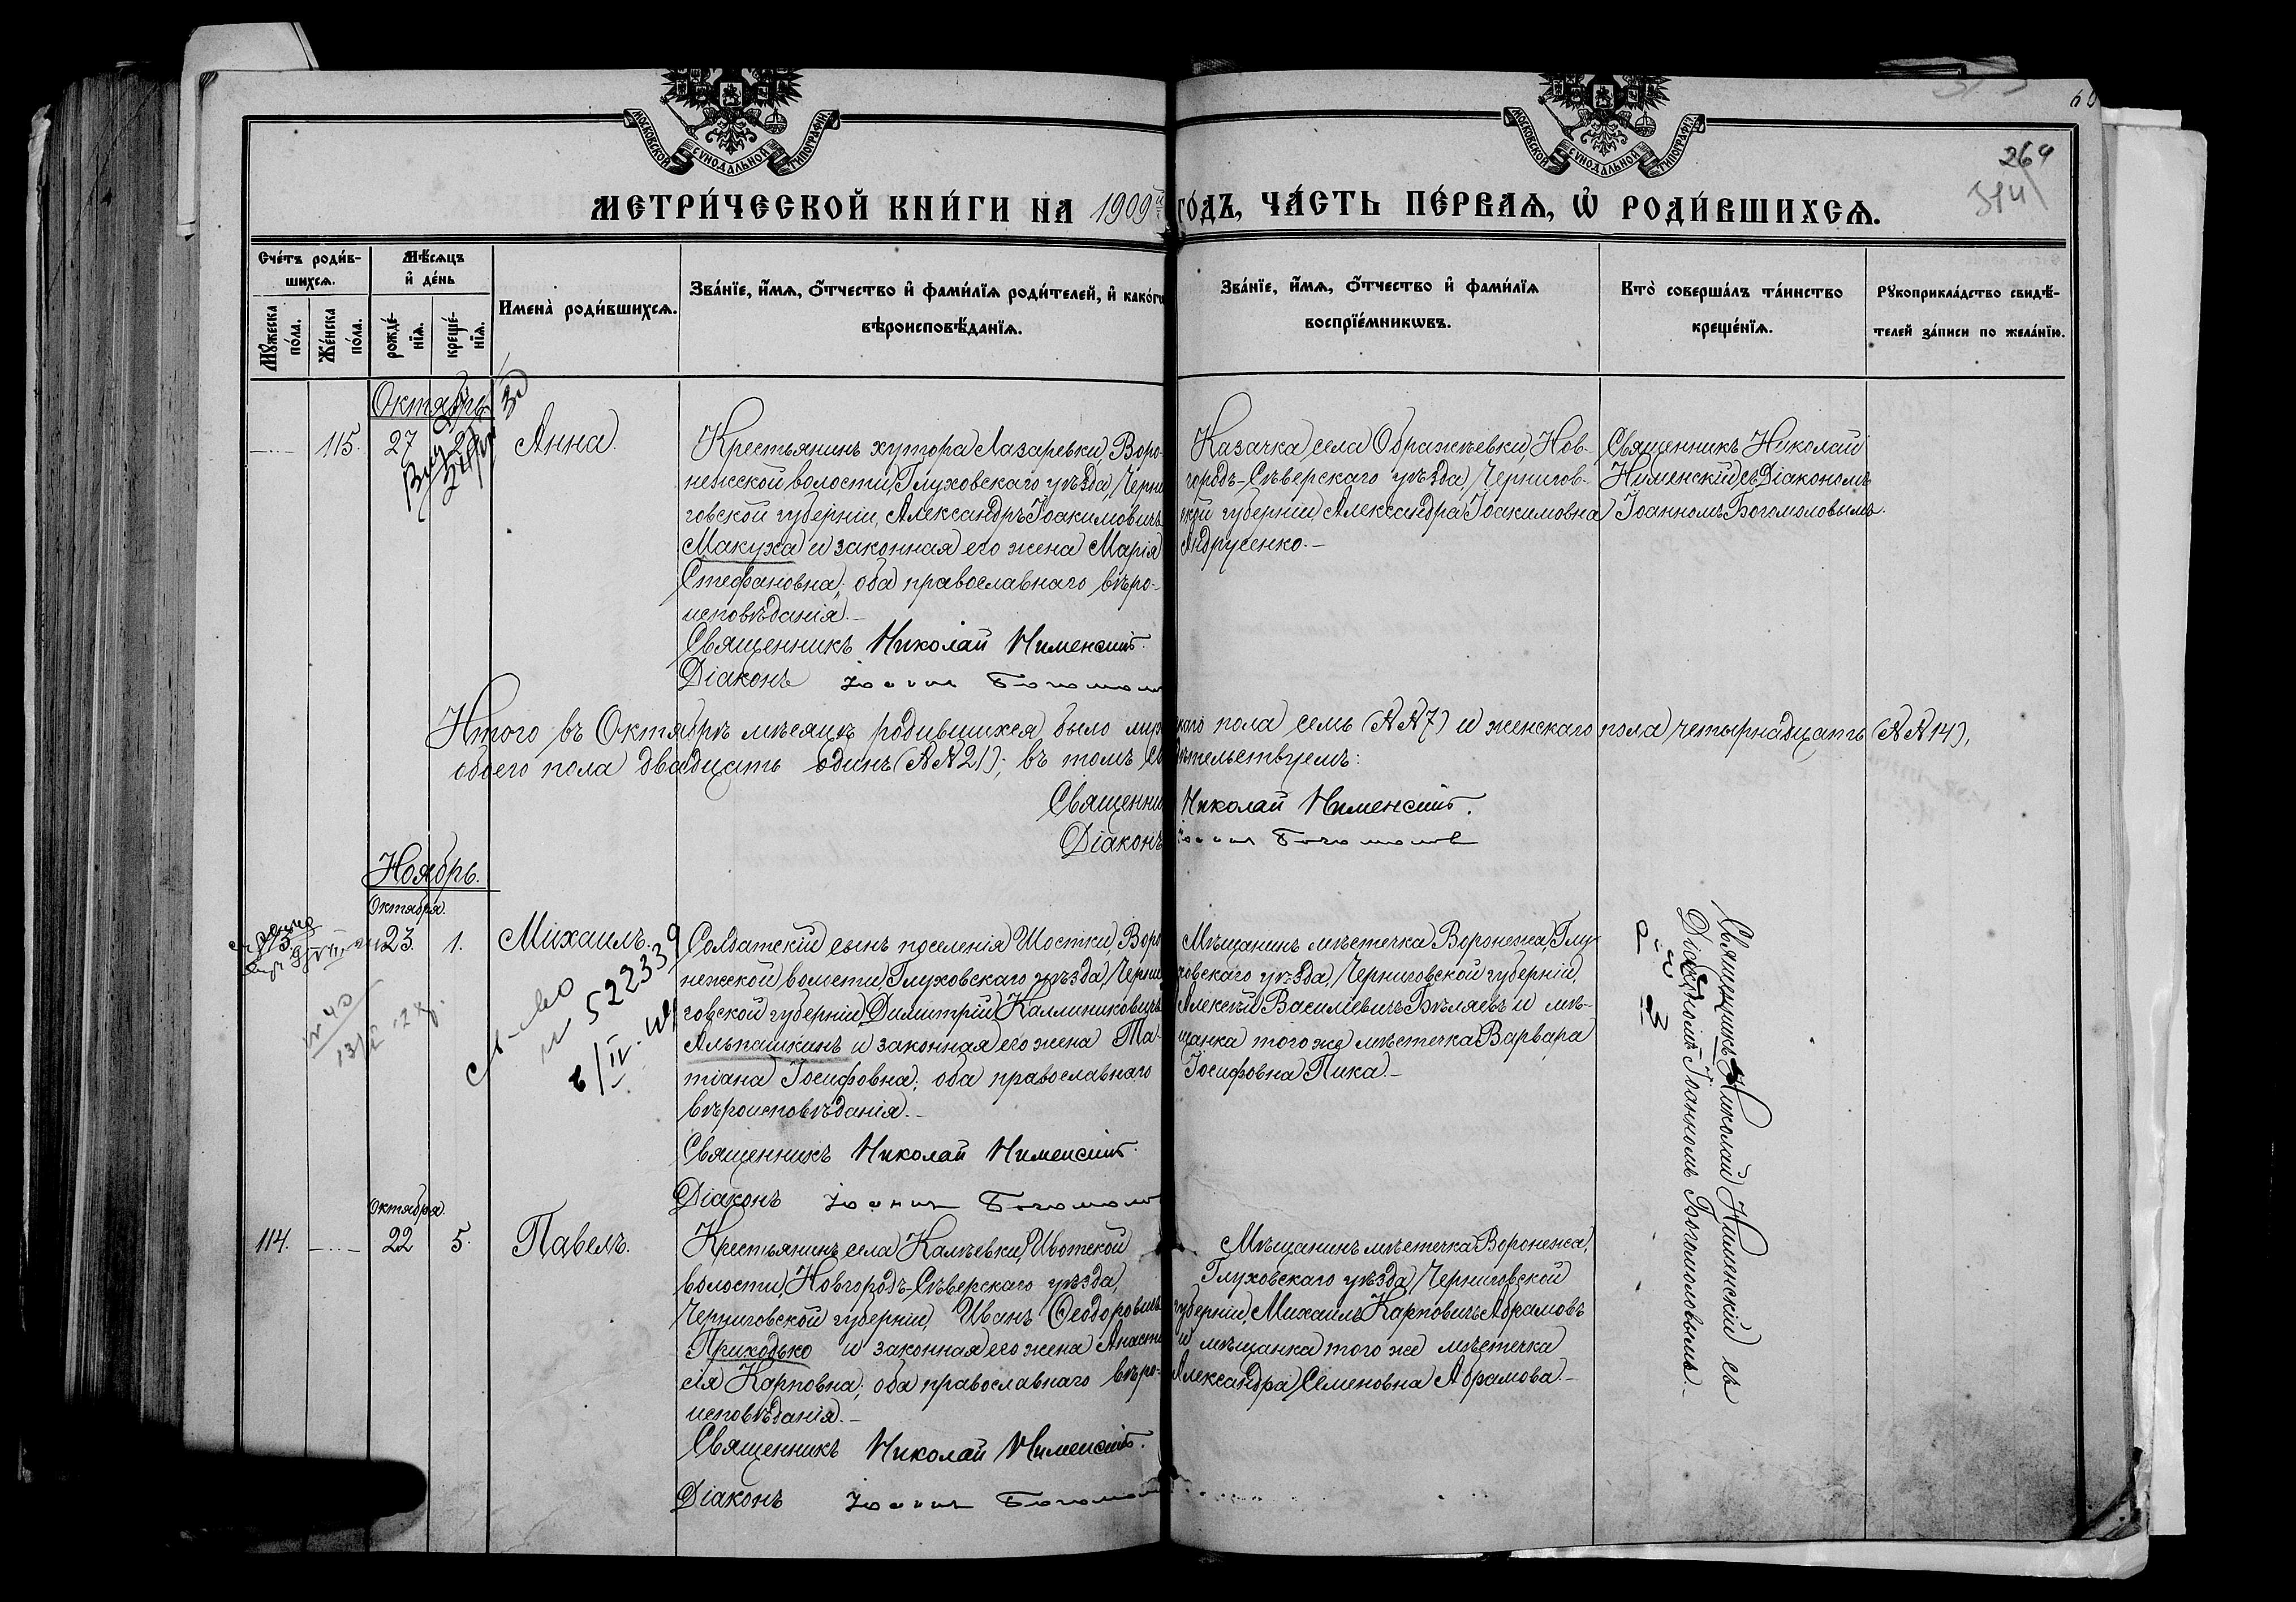 МОСКОВСКОЙ СУНОДАЛЬНОЙ ТИПОГРАФІИ
МОСКОВСКОЙ СУНОДАЛЬНОЙ ТИПОГРАФІИ
269
МЕТРИ́ЧЕСКОЙ КНИ́ГИ НА 1909й ГО́ДЪ, ЧА́СТЬ ПЕ́РВАѦ, Ѡ҆ РОДИ́ВШИХСѦ.
Сче́тъ роди́в-
шихсѧ.
Мꙋ́жеска по́ла.
Же́нска по́ла.
Мѣ́сѧцъ
и҆ де́нь
рожде́-
нїѧ.
креще́-
нїѧ.
Имена̀ роди́вшихсѧ.
Зва́нїе, и҆́мѧ, ѻ҆́тчество и҆ фами́лїѧ роди́телей, и҆ како́гѡ
вѣроисповѣ́данїѧ.
Зва́нїе, и҆́мѧ, ѻ҆́тчество и҆ фами́лїѧ
воспрїе́мникѡвъ.
Кто̀ соверша́лъ та́инство
креще́нїѧ.
Рꙋкоприкла́дство свидѣ́-
телей за́писи по жела́нїю.
Октябрь
115.
27
Анна.
Крестьянинъ хутора Лазаревки, Воро-
нежской волости, Глуховскаго уѣзда, Черни-
говской губерніи, Александръ Іоакимовичъ
Макуха и законная его жена Марія
Стефановна; оба православнаго вѣро-
исповѣданія.-
Священникъ Николай Нименскій.
Діаконъ Іоаннъ Богомолов
Казачка села Ображѣевки, Нов-
городъ-Сѣверскаго уѣзда, Чернигов-
ской губерніи, Александра Іоакимовна
Андрусенко.-
Священникъ Николай
Нименскій съ Діакономъ
Іоанномъ Богомоловымъ.
Итого въ Октябрѣ мѣсяцѣ родившихся было мужскаго пола семь (№№7) и женскаго пола четырнадцать (№№14),
обоего пола двадцать одинъ (№№21); въ томъ свидѣтельствуемъ:
Священникъ Николай Нименскій.
Діаконъ Іоаннъ Богомоловъ
Ноябрь.
Октября.
23.
1.
Михаилъ.
522339
Солдатскій сынъ поселенія Шостки, Воро-
нежской волости, Глуховскаго уѣзда, Черни-
говской губерніи, Димитрій Каллиниковичъ
Альпашкинъ и законная его жена Та-
тіана Іосифовна; оба православнаго
вѣроисповѣданія.-
Священникъ Николай Нименскій.
Діаконъ Іоаннъ Богомолов
Мѣщанинъ мѣстечка Воронежа, Глу-
ховскаго уѣзда, Черниговской губерніи,
Алексѣй Василіевичъ Бѣляевъ и мѣ-
щанка того же мѣстечка Варвара
Іосифовна Пика.-
Священникъ Николай Нименскій съ
Діакономъ Іоанномъ Богомоловымъ.-
Октября.
114.
22
5.
Павелъ.
Крестьянинъ села Калѣевки, Ивотской
волости, Новгородъ-Сѣверскаго уѣзда,
Черниговской губерніи, Иванъ Ѳеодоровичъ
Приходько и законная его жена Анаста-
сія Карповна; оба православнаго вѣро-
исповѣданія.-
Священникъ Николай Нименскій.
Діаконъ Іоаннъ Богомолов
Мѣщанинъ мѣстечка Воронежа,
Глуховскаго уѣзда, Черниговской
губерніи, Михаилъ Карповичъ Абрамовъ
и мѣщанка того же мѣстечка
Александра Семеновна Абрамова.-